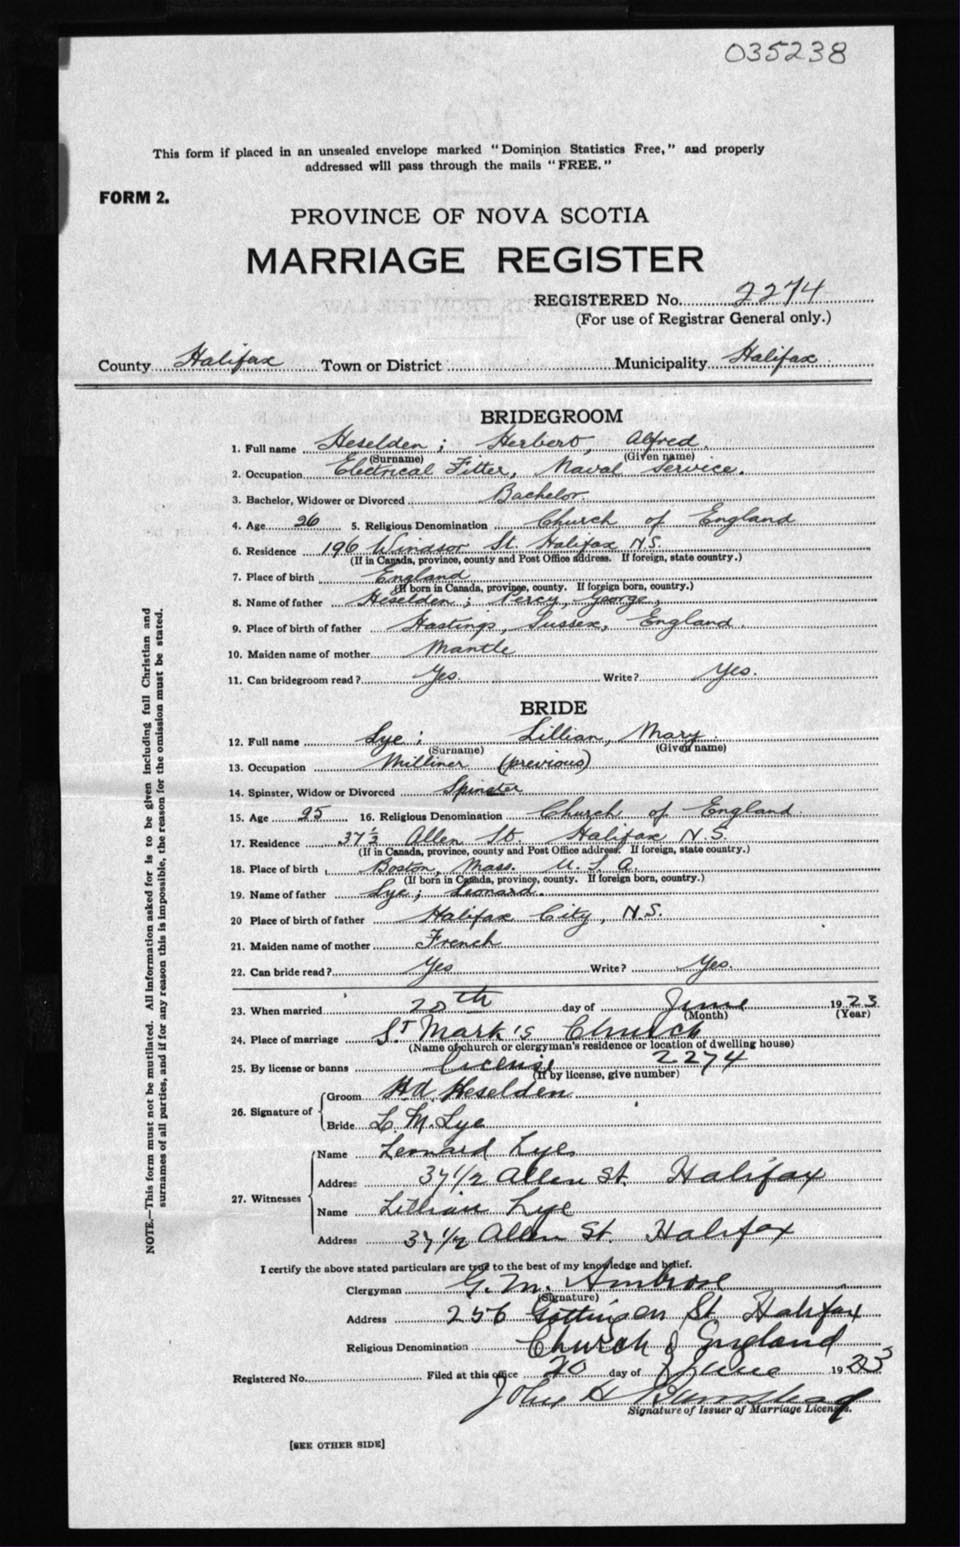 035238
This form if placed in an unsealed envelope marked "Dominion Statistics Free," and properly
addressed will pass through the mails "FREE."
FORM 2.
PROVINCE OF NOVA SCOTIA
MARRIAGE REGISTER
REGISTERED No. 2274
(For use of Registrar General only.)
County Halifax Town or District Municipality Halifax
BRIDEGROOM
1. Full name Heselden ; Herbert, Alfred.
(Surname) (Given name)
2. Occupation Electrical Fitter, Naval Service.
3. Bachelor, Widower or Divorced Bachelor
4. Age 26 5. Religious Denomination Church of England
6. Residence 196 Windsor St. Halifax N.S.
(If in Canada, province, county and Post Office address. If foreign, state country.)
7. Place of birth England
(If born in Canada, province, county. If foreign born, country.)
8. Name of father Heselden ; Percy, George,
9. Place of birth of father Hastings, Sussex, England.
10. Maiden name of mother Mantle
11. Can bridegroom read? Yes. Write? Yes.
BRIDE
12. Full name Lye ; Lillian, Mary.
(Surname) (Given name)
13. Occupation Milliner (previous)
14. Spinster, Widow or Divorced Spinster
15. Age 25 16. Religious Denomination Church of England.
17. Residence 37½ Allen St. Halifax N.S.
(If in Canada, province, county and Post Office address. If foreign, state country.)
18. Place of birth Boston, Mass. U.S.A.
(If born in Canada, province, county. If foreign born, country.)
19. Name of father Lye ; Leonard.
20 Place of birth of father Halifax City, N.S.
21. Maiden name of mother French
22. Can bride read? Yes Write? Yes.
23. When married 20th day of June 1923
(Month) (Year)
24. Place of marriage St Mark's Church
(Name of church or clergyman's residence or location of dwelling house)
25. By license or banns License 2274
(If by license, give number)
26. Signature of
Groom H.A. Heselden
Bride L. M. Lye
27. Witnesses
Name Leonard Lye
Address 37 1/2 Allen St. Halifax
Name Lillian Lye
Address 37 1/2 Allen St. Halifax
I certify the above stated particulars are true to the best of my knowledge and belief.
Clergyman G. M. Ambrose
(Signature)
Address 256 Gottingen St. Halifax
Religious Denomination Church of England
Registered No. Filed at this office 20 day of June 1923
John H
Signature of Issuer of Marriage Licenses.
[SEE OTHER SIDE]
NOTE.—This form must not be mutilated. All information asked for is to be given including full Christian and
surnames of all parties, and if for any reason this is impossible, the reason for the omission must be stated.